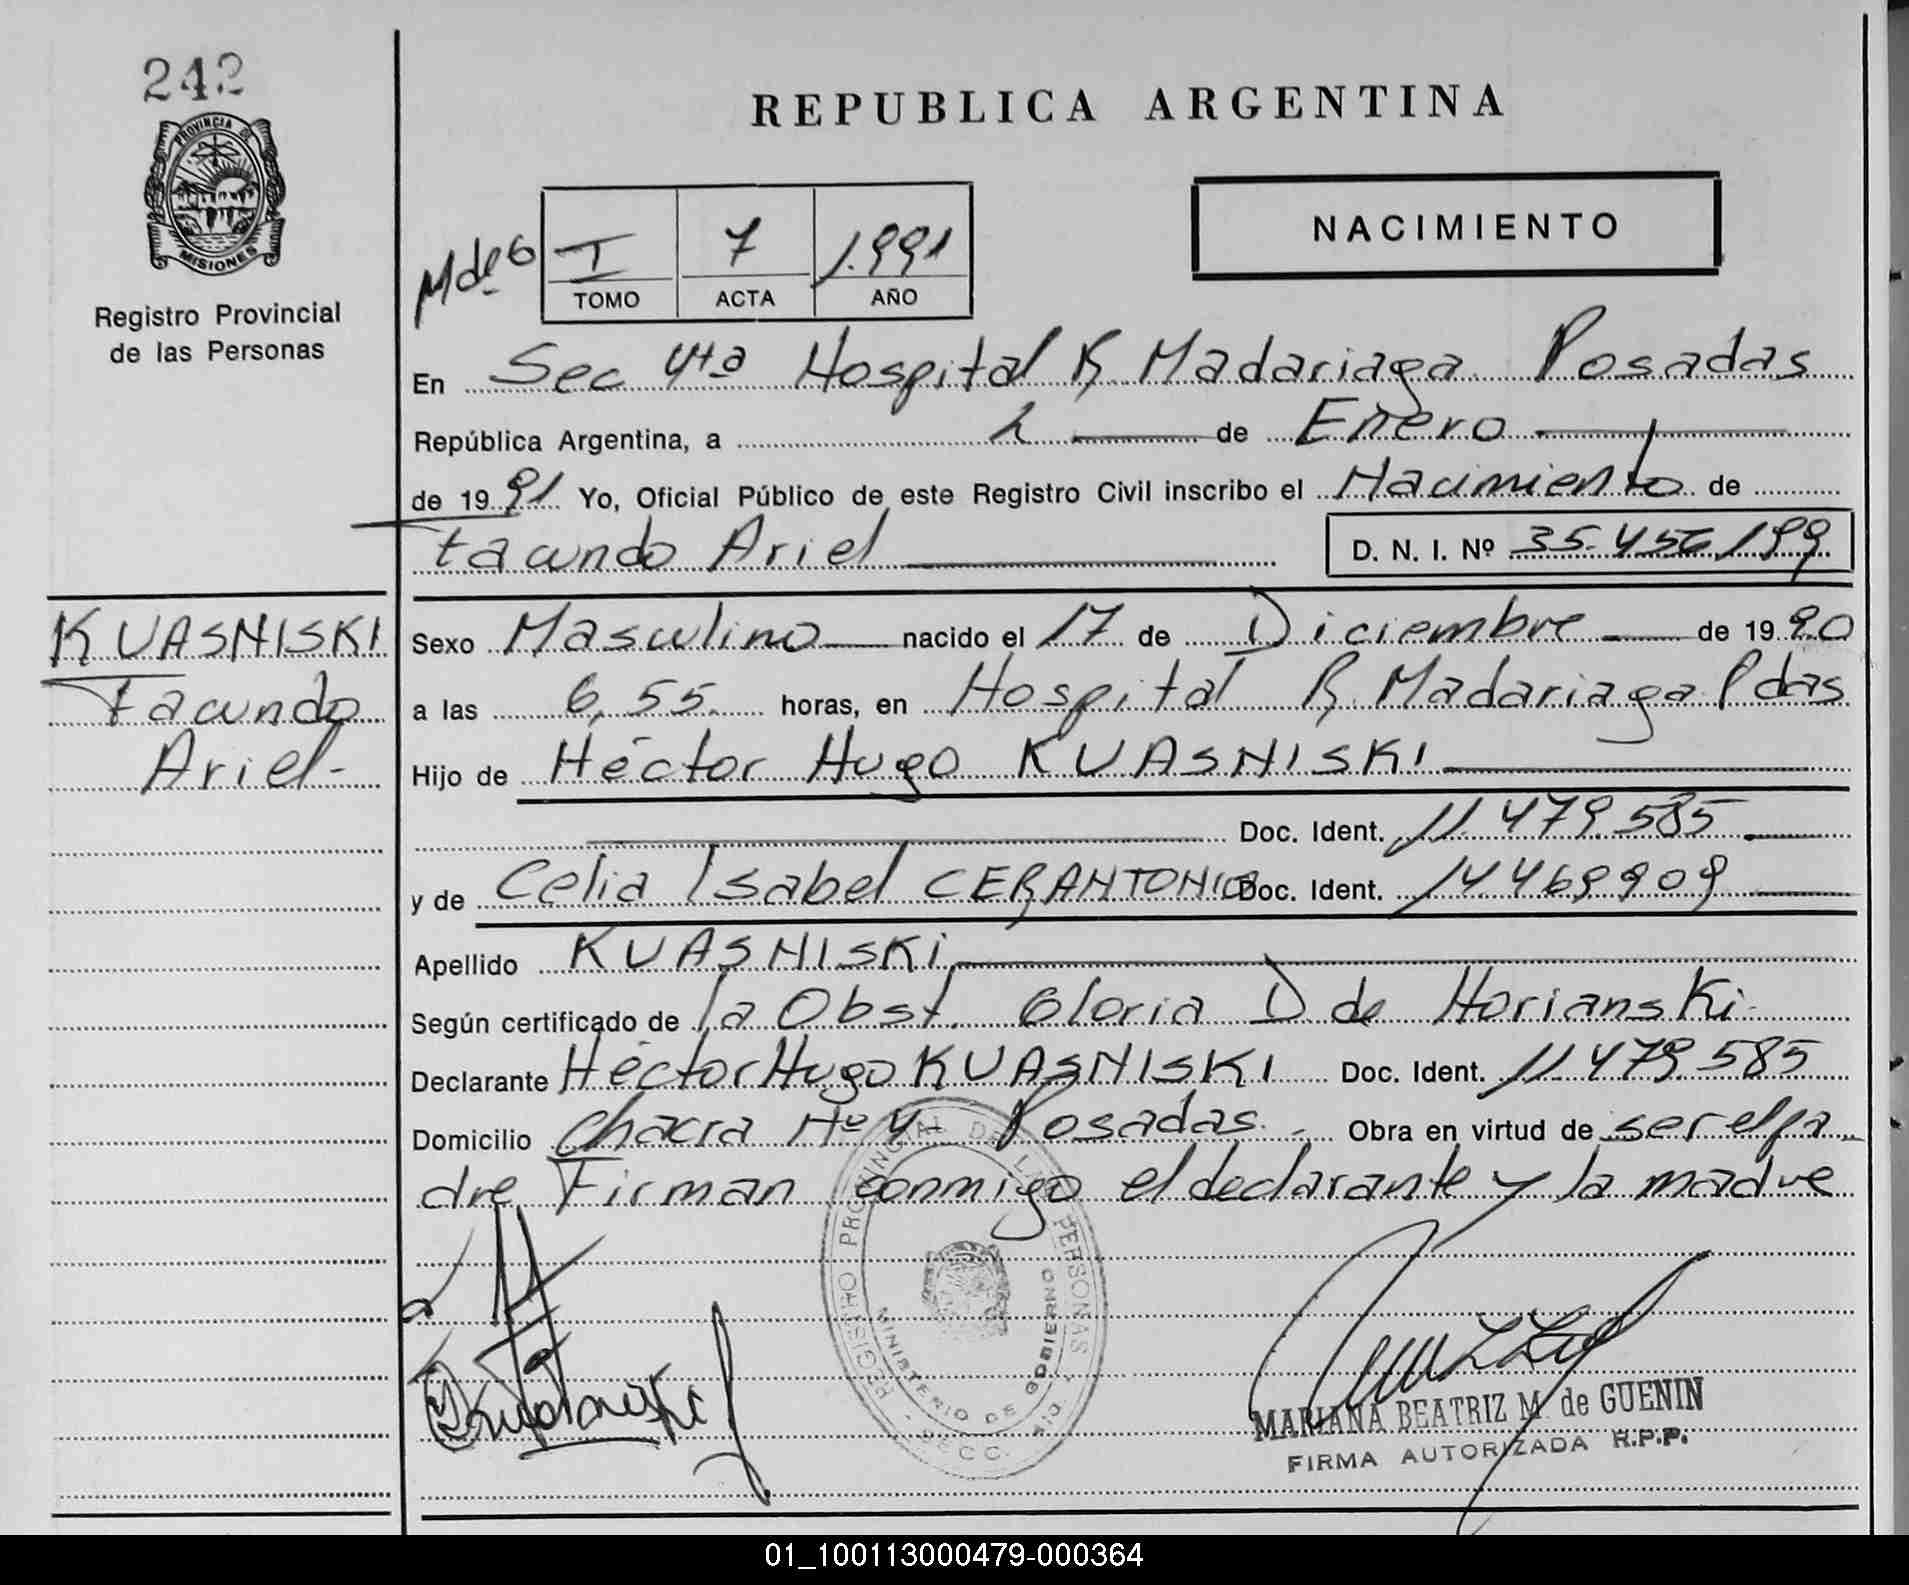 242
PROVINCIA DE
MISIONES
Registro Provincial
de las Personas
REPUBLICA ARGENTINA
NACIMIENTO
I 7 1.991
TOMO ACTA AÑO
En Sec 4ta Hospital R Madariaga Posadas
República Argentina, a 2 de Enero
de 1991 Yo, Oficial Público de este Registro Civil inscribo el Nacimiento de
Facundo Ariel D. N. I. Nº 35.456.199
KUASNISKI
Facundo
Ariel-
Sexo Masculino nacido el 17 de Diciembre de 1990
a las 6,55 horas, en Hospital R. Madariaga Pdas
Hijo de Héctor Hugo KUASNISKI
Doc. Ident. 11.479.585
y de Celia Isabel CERANTONIO Doc. Ident. 14469909
Apellido KUASNISKI
Según certificado de la Obst. Gloria D de Horianski
Declarante Héctor Hugo KUASNISKI Doc. Ident. 11.479.585
Domicilio Chacra Nº 4- Posadas. Obra en virtud de ser el pa
dre Firman conmigo el declarante y la madre
REGISTRO PROVINCIAL DE LAS PERSONAS
MINISTERIO DE GOBIERNO
MARIANA BEATRIZ M. de GUENIN
FIRMA AUTORIZADA R.P.P.
01_100113000479-000364